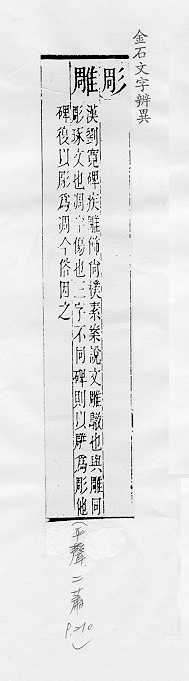 金石文字辨異
彫 雕
漢劉寬碑疾雕飾尚樸素案說文雕鷻也與鵰同
彫琢文也凋半傷也三字不同碑則以雕為彫他
碑復以彫為凋今俗因之
(平聲二蕭
P.210)